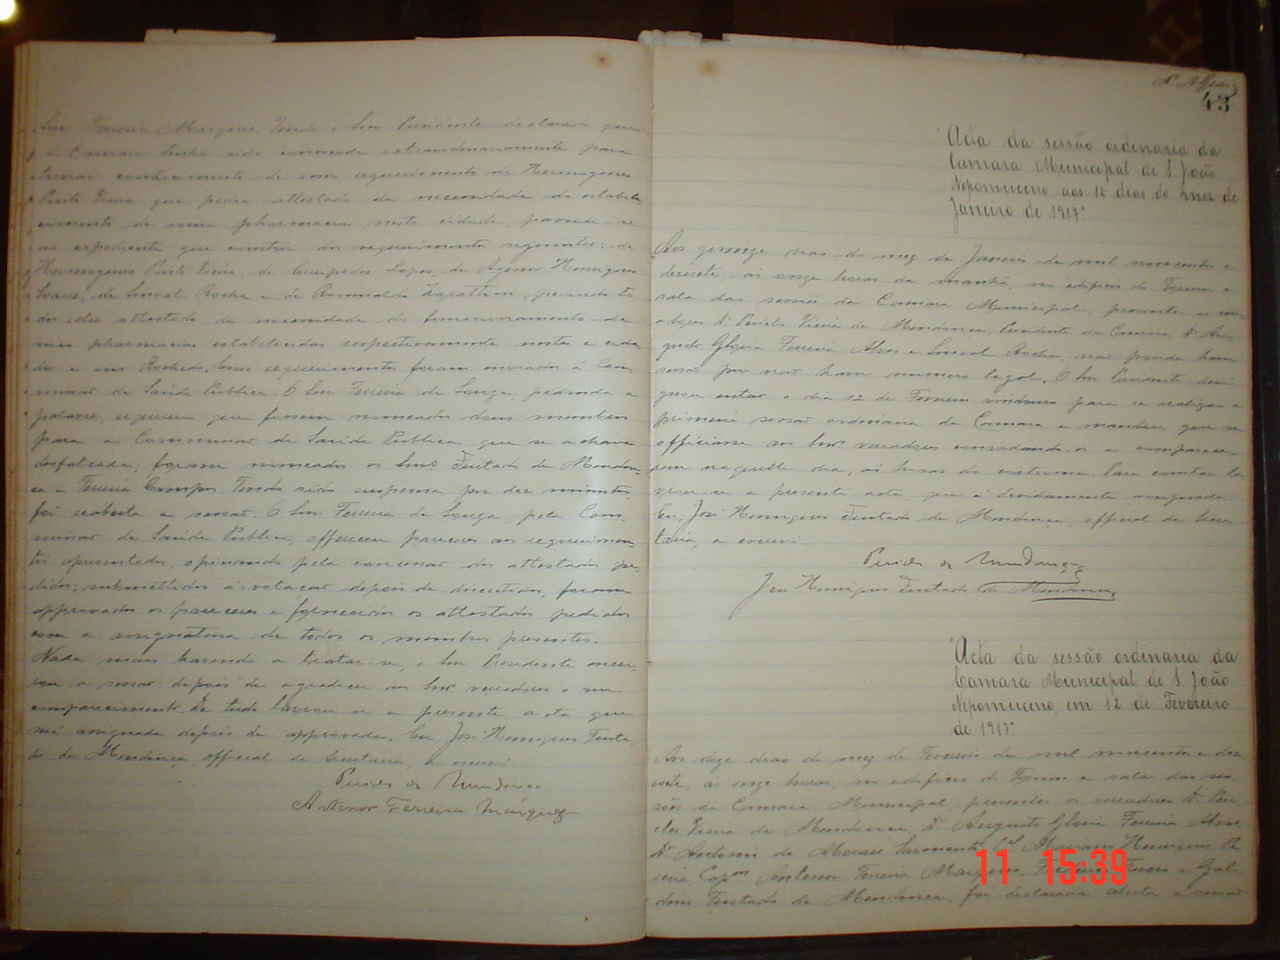 Ferreira Marques. Tendo o Snr Presidente declarado que
a Camara tinha sido convocada extraordinariamente para
tomar conhecimento de um requerimento de Hermogeneo
Vieira que pedia attestado da necessidade do estabele
cimento de uma pharmacia nesta cidade, passou-se
ao expediente que constou dos requerimentos seguintes: de
Hermogeneo Vieira, de Euripedes Lopes, de Agenor Henriques
Soares, de Sinval Rocha e de Romualdo pedindo to
dos elles attestado da necessidade do funccionamento de
suas pharmacias estabelecidas respectivamente nesta cida
de e em Rochedo. Esses requerimentos foram enviados á Com
missão de Saúde Publica. O Snr Ferreira de Souza, pedindo a
palavra, requereu que fossem nomeados dous membros
para a Commissão de Saúde Publica que se achava
desfalcada; foram nomeados os Snrs Furtado de Mendon
ça e Ferreira Campos. Tendo sido suspensa por dez minutos
foi reaberta a sessão. O Snr Ferreira de Souza, pela Com
missão de Saúde Publica, offereceu pareceres aos requerimen
tos apresentados, opinando pela concessão dos attestados pe
didos; submettidos á votação depois de discutidos, foram
approvados os pareceres e fornecidos os attestados pedidos
com a assignatura de todos os membros presentes.
Nada mais havendo a tratar-se, o Snr Presidente encer
rou a sessão depois de agradecer aos Snrs vereadores o seu
comparecimento. De tudo lavrou-se a presente acta que
será assignada depois de approvada. Eu, José Henriques Furta
do de Mendonça, official da Secretaria, a escrevi.
Pericles de Mendonça
Antenor Ferreira Márques
43
Acta da sessão ordinaria da
Camara Municipal de S. João
Nepomuceno, aos 15 dias do mez de
Janeiro de 1917.
Aos quinze dias do mez de Janeiro de mil novecentos e
dezesete, ás onze horas da manhã, no edificio do Forum e
sala das sessões da Camara Municipal, presentes os ve
readores Dr Pericles Vieira de Mendonça, Presidente da Camara, Dr Au
gusto Gloria Ferreira Alves e Sinval Rocha, não poude haver
sessão por não haver numero legal. O Snr Presidente desi
gnou então o dia 12 de Fevereiro vindouro para se realizar a
primeira sessão ordinaria da Camara e mandou que se
officiasse aos Snrs vereadores convidando-os a comparece
rem naquelle dia, ás horas do costume. Para constar la
vrou-se a presente acta, que é devidamente assignada.
Eu, José Henriques Furtado de Mendonça, official da Secre
taria, a escrevi.
Pericles de Mendonça
José Henriques Furtado de Mendonça
Acta da sessão ordinaria da
Camara Municipal de S. João
Nepomuceno, em 12 de Fevereiro
de 1917.
Aos doze dias do mez de Fevereiro de mil novecentos e dez
esete, ás onze horas, no edificio do Forum e sala das ses
sões da Camara Municipal, presentes os vereadores Dr Peri
cles Vieira de Mendonça, Dr Augusto Gloria Ferreira Alves
Dr Antonio de Moraes Sarmento, Cel Henriques Pe
reira, Capm Antenor Ferreira Marques, e Gal
dino Furtado de Mendonça, foi declarada aberta a sessão
11 15:39